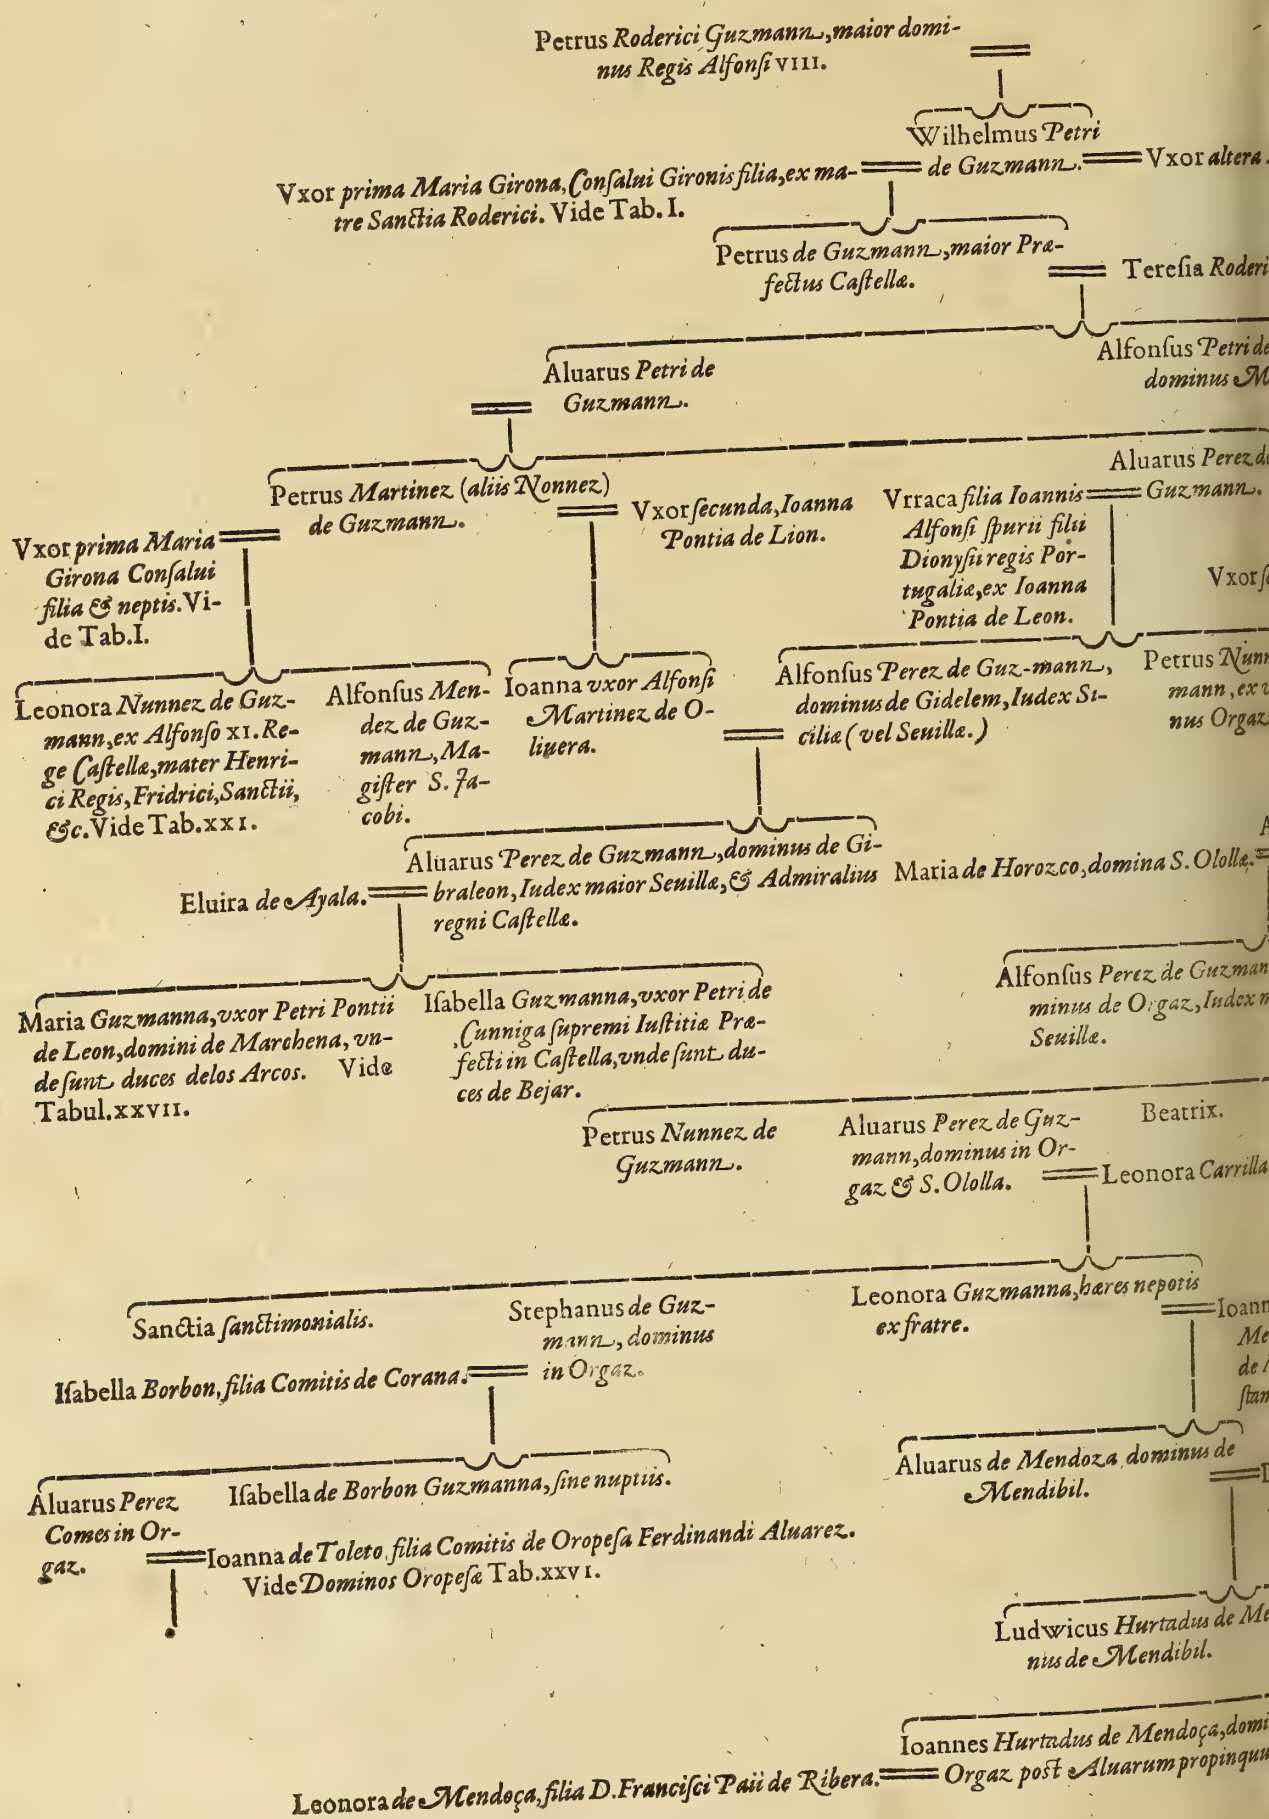 Petrus Roderici Guzmann, maior domi-
nus Regis Alfonſi VIII.
Wilhelmus Petri
de Guzmann.
Vxor altera
Vxor prima Maria Girona, Conſalui Gironis filia, ex ma-
tre Sanctia Roderici. Vide Tab. I.
Petrus de Guzmann, maior Præ-
fectus Caſtellæ.
Tereſia Roderi
Aluarus Petri de
Guzmann.
Alfonſus Petri de
dominus M
Petrus Martinez (aliis Nonnez)
de Guzmann.
Vxor prima Maria
Girona Conſalui
filia & neptis. Vi-
de Tab. I.
Vxor ſecunda, Ioanna
Pontia de Lion.
Vrraca filia Ioannis
Alfonſi ſpurii filii
Dionyſii regis Por-
tugaliæ, ex Ioanna
Pontia de Leon.
Aluarus Perez de
Guzmann.
Vxor ſe
Leonora Nunnez de Guz-
mann, ex Alfonſo XI. Re-
ge Caſtellæ, mater Henri-
ci Regis, Fridrici, Sanctii,
&c. Vide Tab. XXI.
Alfonſus Men-
dez de Guz-
mann, Ma-
giſter S. Ja-
cobi.
Ioanna vxor Alfonſi
Martinez de O-
liuera.
Alfonſus Perez de Guz-mann,
dominus de Gidelem, Iudex Si-
ciliæ (vel Seuillæ.)
Petrus Nunn
mann, ex v
nus Orgaz
Aluarus Perez de Guzmann, dominus de Gi-
braleon, Iudex maior Seuillæ, & Admiralius
regni Caſtellæ.
Eluira de Ayala.
Maria de Horozco, domina S. Olollæ.
A
Maria Guzmanna, vxor Petri Pontii
de Leon, domini de Marchena, vn-
de ſunt duces delos Arcos. Vide
Tabul. XXVII.
Iſabella Guzmanna, vxor Petri de
Cunniga ſupremi Iuſtitiæ Præ-
fecti in Caſtella, vnde ſunt du-
ces de Bejar.
Alfonſus Perez de Guzman
minus de Orgaz, Iudex m
Seuillæ.
Petrus Nunnez de
Guzmann.
Aluarus Perez de Guz-
mann, dominus in Or-
gaz & S. Ololla.
Beatrix.
Leonora Carrilla
Sanctia ſanctimonialis.
Stephanus de Guz-
mann, dominus
in Orgaz.
Leonora Guzmanna, hæres nepotis
ex fratre.
Ioann
Me
de
ſtan
Iſabella Borbon, filia Comitis de Corana.
Aluarus Perez
Comes in Or-
gaz.
Iſabella de Borbon Guzmanna, ſine nuptiis.
Aluarus de Mendoza dominus de
Mendibil.
Ioanna de Toleto filia Comitis de Oropeſa Ferdinandi Aluarez.
Vide Dominos Oropeſæ Tab. XXVI.
Ludwicus Hurtadus de Me
nus de Mendibil.
Ioannes Hurtadus de Mendoça, domi
Orgaz poſt Aluarum propinquu
Leonora de Mendoça, filia D. Franciſci Paii de Ribera.